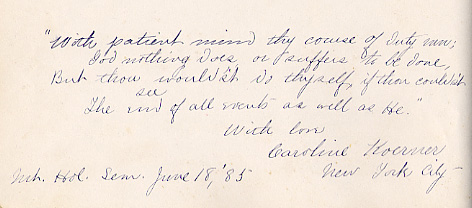 "With patient mind thy course of duty run;
God nothing does, or suffers to be done,
But thou would'st do thyself, if thou could'st
see
The end of all events as well as He."
With love
Caroline Koerner
New York City
Mt. Hol. Sem. June 18, '85